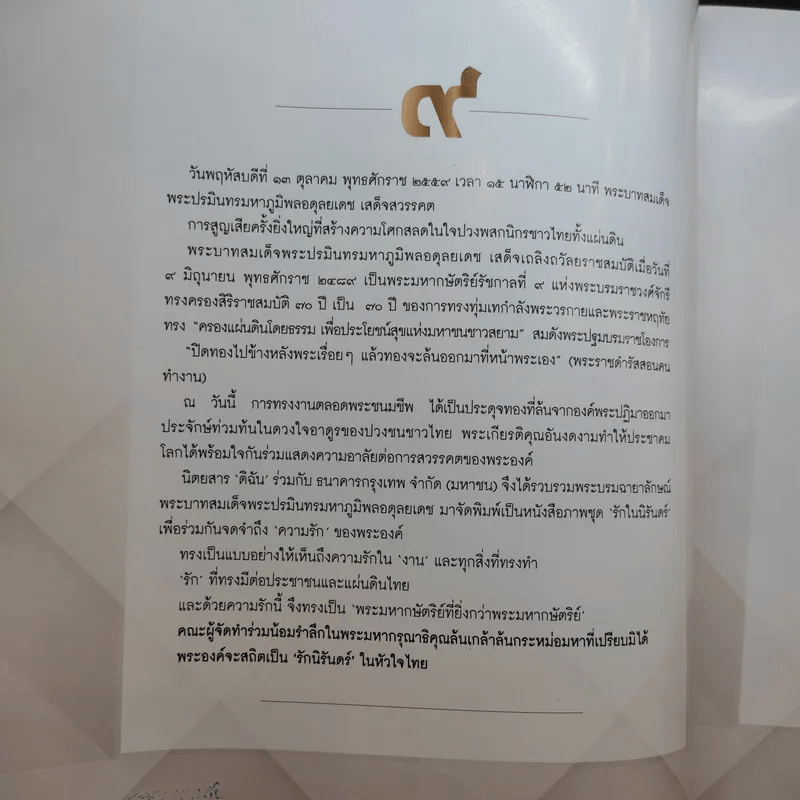 ๙
วันพฤหัสบดีที่ ๑๓ ตุลาคม พุทธศักราช ๒๕๕๙ เวลา ๑๕ นาฬิกา ๕๒ นาที พระบาทสมเด็จ
พระปรมินทรมหาภูมิพลอดุลยเดช เสด็จสวรรคต
การสูญเสียครั้งยิ่งใหญ่ที่สร้างความโศกสลดในใจปวงพสกนิกรชาวไทยทั้งแผ่นดิน
พระบาทสมเด็จพระปรมินทรมหาภูมิพลอดุลยเดช เสด็จเถลิงถวัลยราชสมบัติเมื่อวันที่
๙ มิถุนายน พุทธศักราช ๒๔๘๙ เป็นพระมหากษัตริย์รัชกาลที่ ๙ แห่งพระบรมราชวงศ์จักรี
ทรงครองสิริราชสมบัติ ๗๐ ปี เป็น ๗๐ ปี ของการทรงทุ่มเทกำลังพระวรกายและพระราชหฤทัย
ทรง “ครองแผ่นดินโดยธรรม เพื่อประโยชน์สุขแห่งมหาชนชาวสยาม” สมดังพระปฐมบรมราชโองการ
“ปิดทองไปข้างหลังพระเรื่อยๆ แล้วทองจะล้นออกมาที่หน้าพระเอง” (พระราชดำรัสสอนคน
ทำงาน)
ณ วันนี้ การทรงงานตลอดพระชนมชีพ ได้เป็นประดุจทองที่ล้นจากองค์พระปฏิมาออกมา
ประจักษ์ท่วมท้นในดวงใจอาดูรของปวงชนชาวไทย พระเกียรติคุณอันงดงามทำให้ประชาคม
โลกได้พร้อมใจกันร่วมแสดงความอาลัยต่อการสวรรคตของพระองค์
นิตยสาร ‘ดิฉัน’ ร่วมกับ ธนาคารกรุงเทพ จำกัด (มหาชน) จึงได้รวบรวมพระบรมฉายาลักษณ์
พระบาทสมเด็จพระปรมินทรมหาภูมิพลอดุลยเดช มาจัดพิมพ์เป็นหนังสือภาพชุด ‘รักในนิรันดร์’
เพื่อร่วมกันจดจำถึง ‘ความรัก’ ของพระองค์
ทรงเป็นแบบอย่างให้เห็นถึงความรักใน ‘งาน’ และทุกสิ่งที่ทรงทำ
‘รัก’ ที่ทรงมีต่อประชาชนและแผ่นดินไทย
และด้วยความรักนี้ จึงทรงเป็น ‘พระมหากษัตริย์ที่ยิ่งกว่าพระมหากษัตริย์’
คณะผู้จัดทำร่วมน้อมรำลึกในพระมหากรุณาธิคุณล้นเกล้าล้นกระหม่อมหาที่เปรียบมิได้
พระองค์จะสถิตเป็น ‘รักนิรันดร์’ ในหัวใจไทย